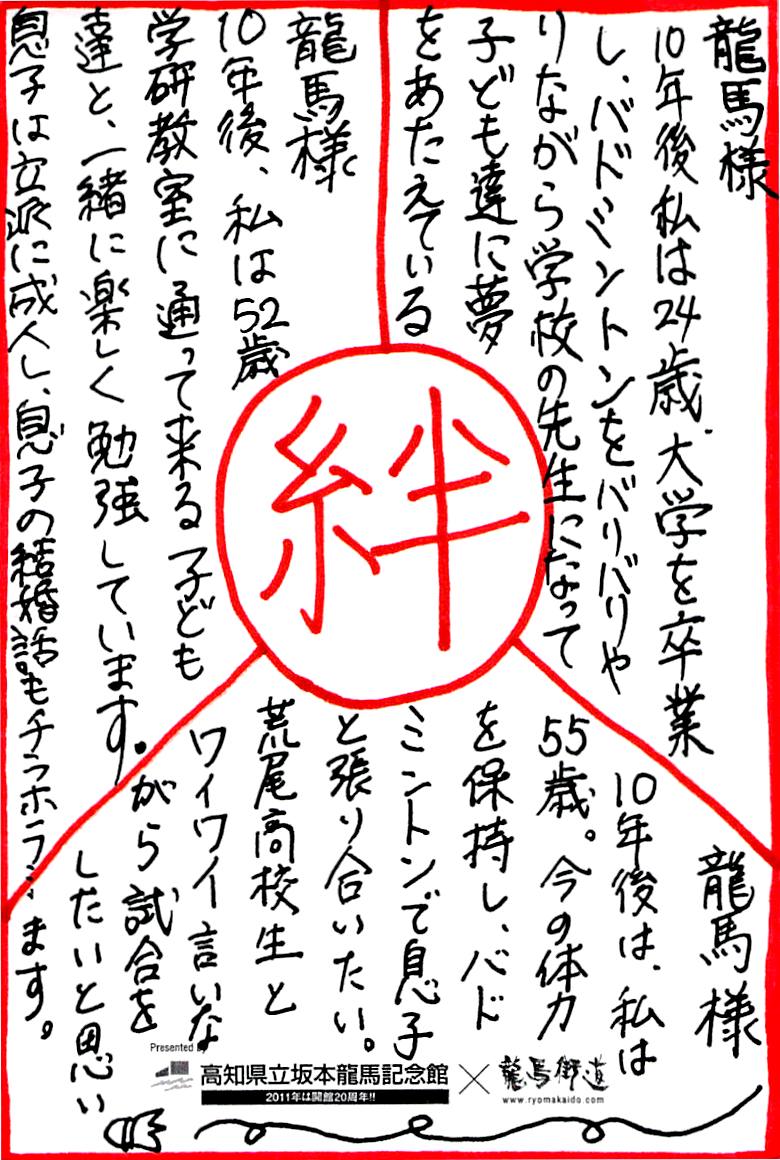 龍馬様
10年後私は24歳、大学を卒業
し、バドミントンをバリバリや
りながら学校の先生になって
子ども達に夢
をあたえている
龍馬様
10年後、私は52歳
学研教室に通って来る子ども
達と、一緒に楽しく勉強しています。
息子は立派に成人し、息子の結婚話もチラホラ…
絆
龍馬様
10年後は、私は
55歳。今の体力
を保持し、バド
ミントンで息子
と張り合いたい。
荒尾高校生と
ワイワイ言いな
がら試合を
したいと思い
ます。
Presented by
高知県立坂本龍馬記念館
2011年は開館20周年!!
×
龍馬街道
www.ryomakaido.com